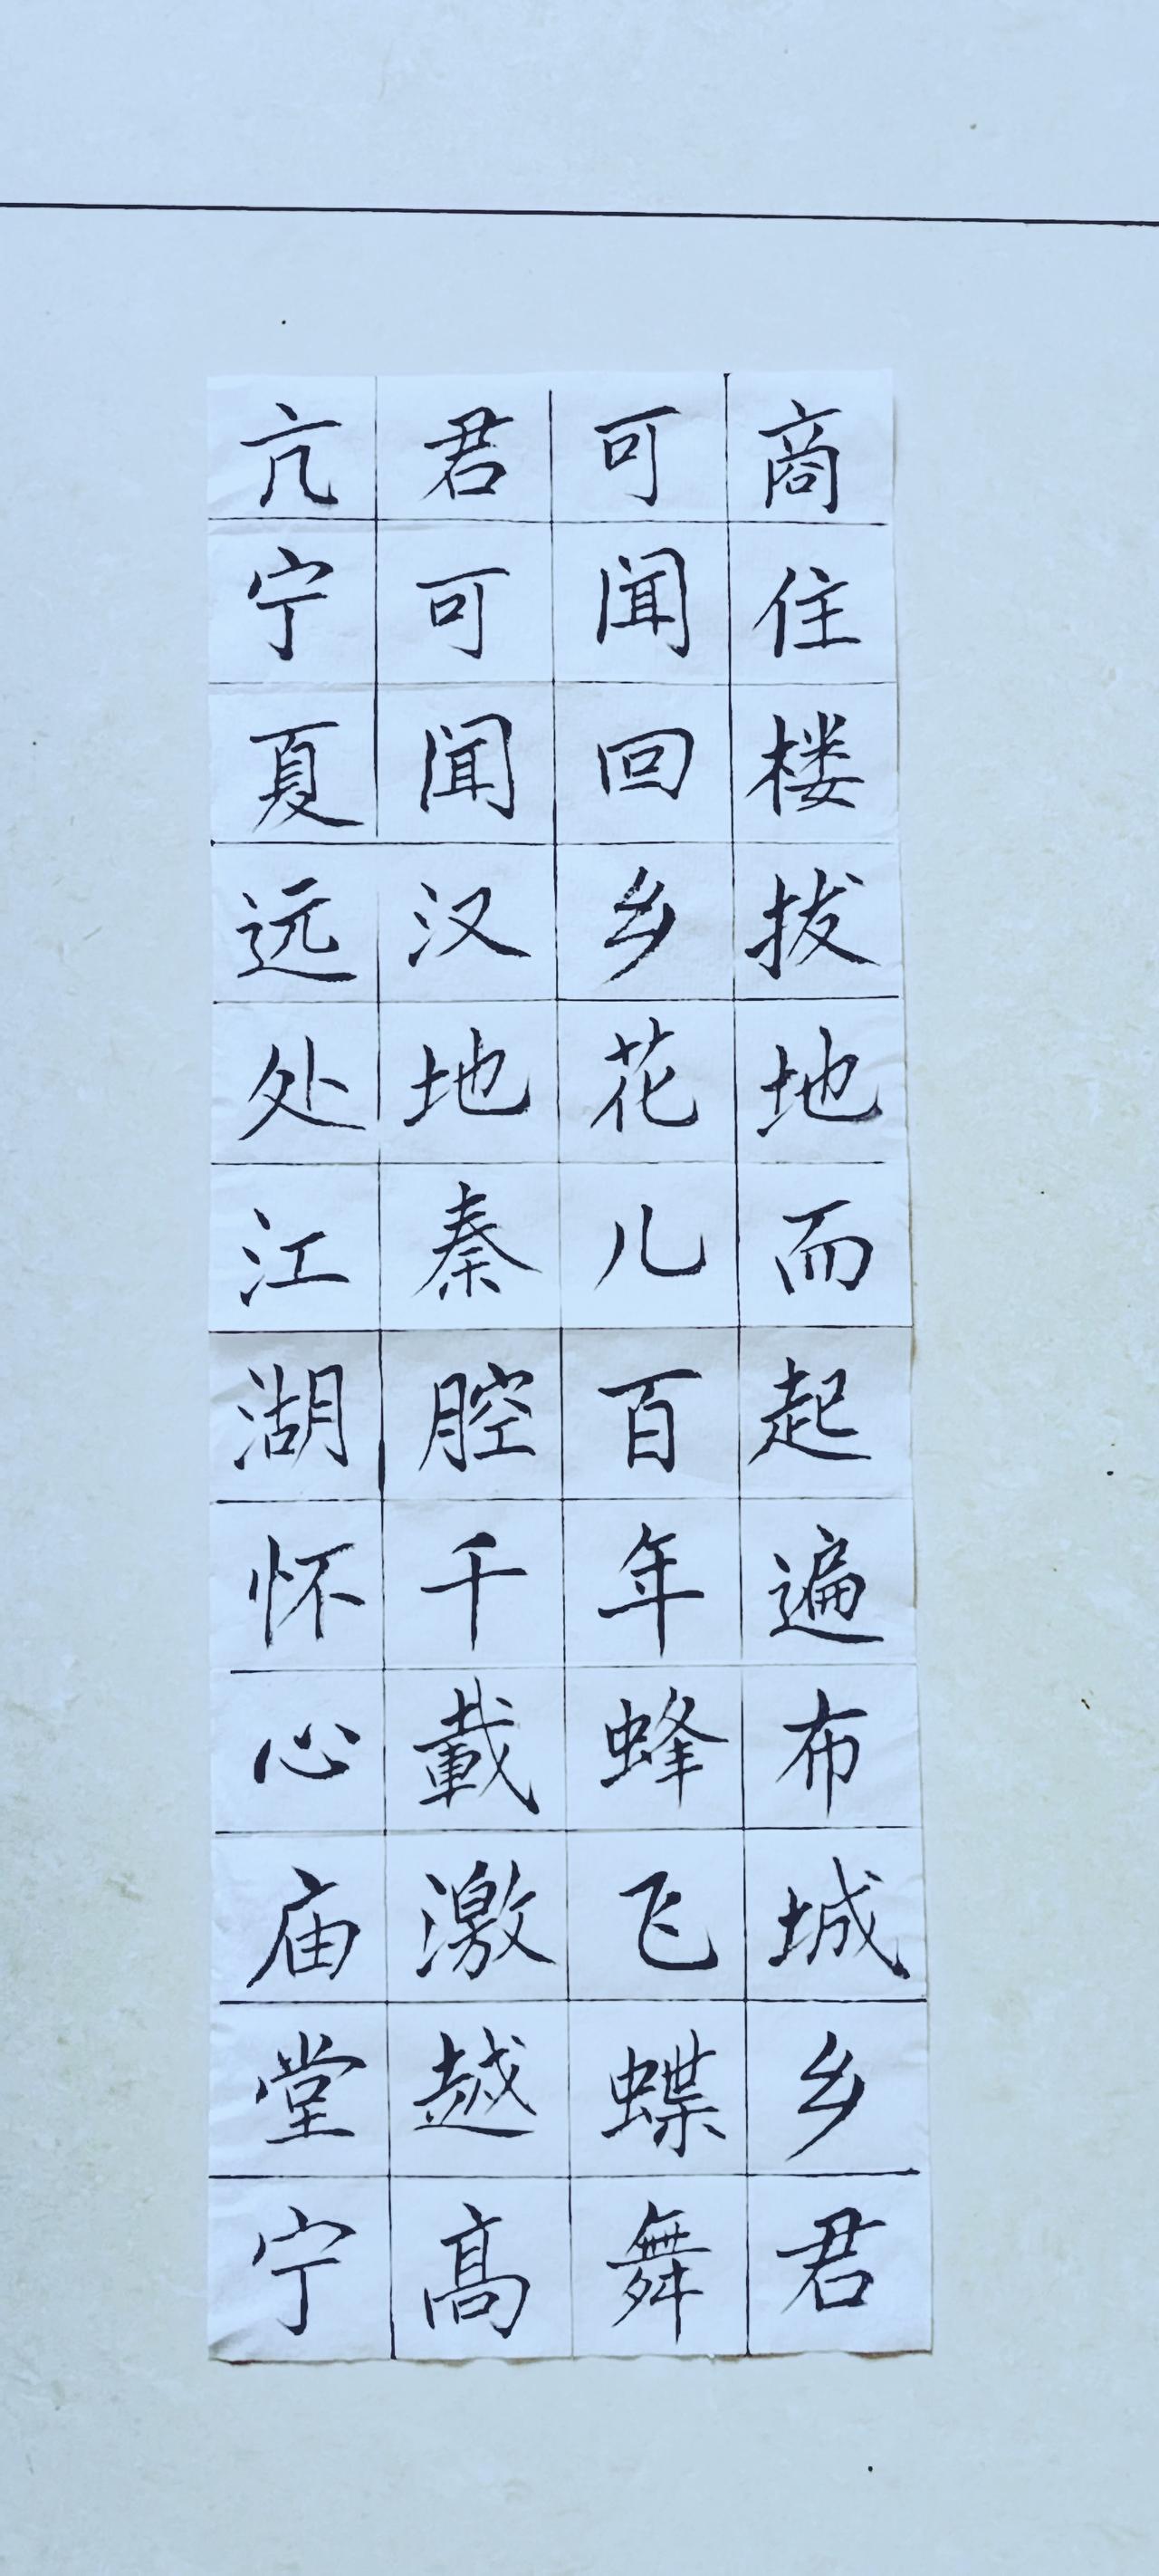 商住楼拔地而起遍布城乡君
可闻回乡花儿百年蜂飞蝶舞
君可闻汉地秦腔千載激越高
亢宁夏远处江湖怀心庙堂宁